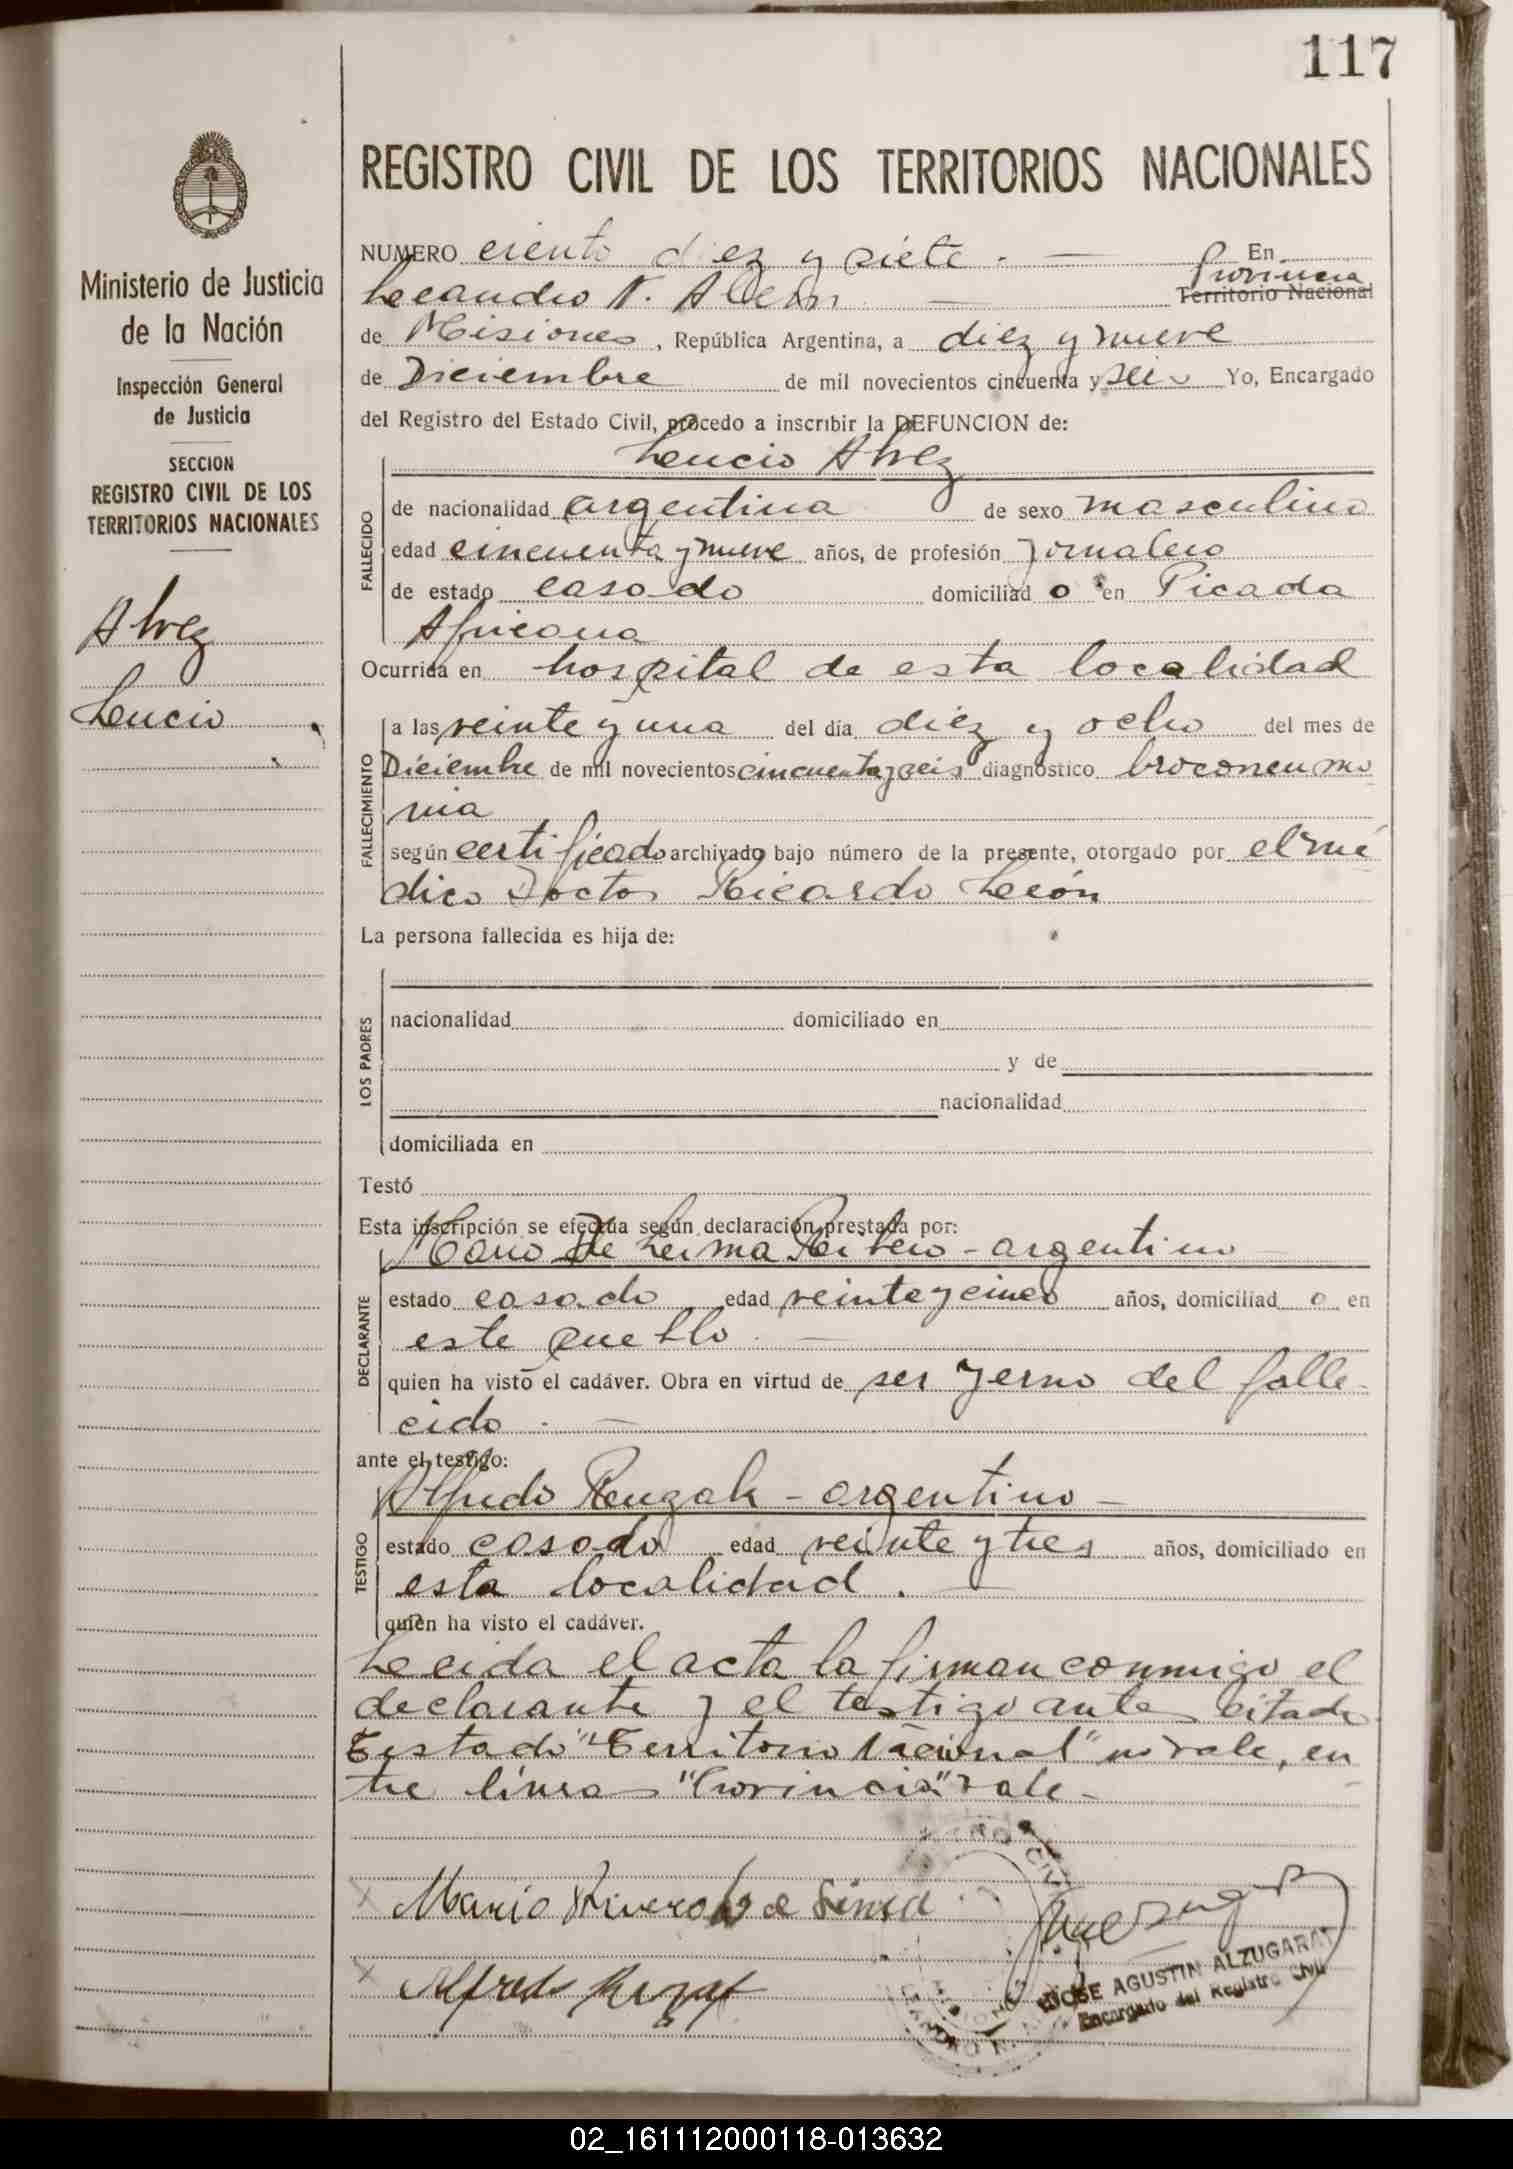 117
REGISTRO CIVIL DE LOS TERRITORIOS NACIONALES
Ministerio de Justicia
de la Nación
Inspección General
de Justicia
SECCION
REGISTRO CIVIL DE LOS
TERRITORIOS NACIONALES
Alvez
Lucio
NUMERO ciento diez y siete. — En
Leandro N. Alem — Provincia Territorio Nacional
de Misiones, República Argentina, a diez y nueve
de Diciembre de mil novecientos cincuenta y seis Yo, Encargado
del Registro del Estado Civil, procedo a inscribir la DEFUNCION de:
Lucio Alvez
FALLECIDO
de nacionalidad argentina de sexo masculino
edad cincuenta y nueve años, de profesión jornalero
de estado casado domiciliad o en Picada
Africana
Ocurrida en hospital de esta localidad
FALLECIMIENTO
a las veinte y una del día diez y ocho del mes de
Diciembre de mil novecientos cincuenta y seis diagnóstico broconeumo
nia
según certificado archivado bajo número de la presente, otorgado por el mé
dico Doctor Ricardo León
La persona fallecida es hija de:
LOS PADRES
nacionalidad domiciliado en
y de
nacionalidad
domiciliada en
Testó
Esta inscripción se efectúa según declaración prestada por:
DECLARANTE
Mario De Lima - argentino
estado casado edad veinte y cinco años, domiciliad o en
este pueblo. —
quien ha visto el cadáver. Obra en virtud de ser yerno del falle-
cido. —
ante el testigo:
TESTIGO
Alfredo - argentino -
estado casado edad veinte y tres años, domiciliado en
esta localidad. —
quien ha visto el cadáver.
Leida el acta la firman conmigo el
declarante y el testigo antes citado
Testado "Territorio Nacional" no vale, en
tre lineas "Provincia" vale-
Mario de Lima
Alfredo
JOSE AGUSTIN ALZUGARAY
Encargado del Registro Civil
02_161112000118-013632